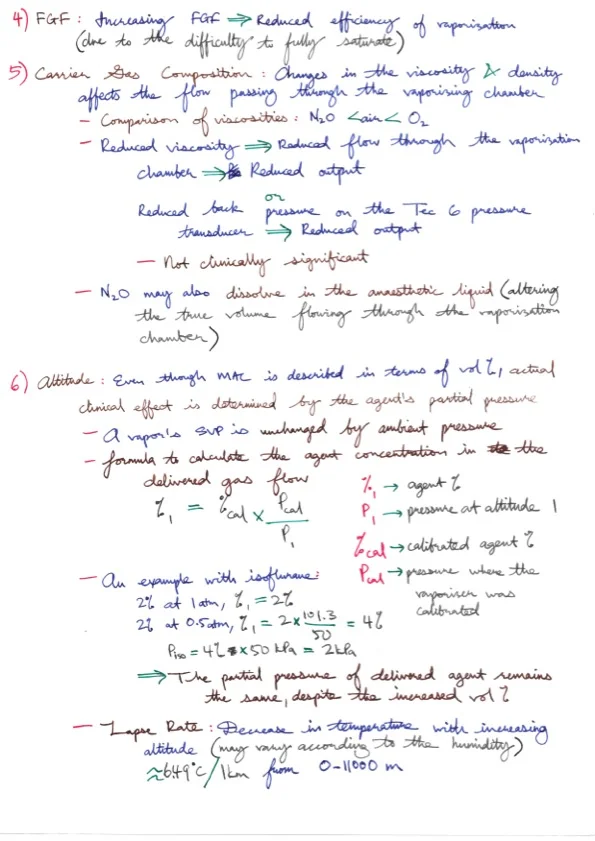 4) FGF : Increasing FGF ⇒ Reduced efficiency of vaporization
(due to the difficulty to fully saturate)
5) Carrier Gas Composition : Changes in the viscosity & density
affects the flow passing through the vaporising chamber
- Comparison of viscosities : N2O < air < O2
- Reduced viscosity ⇒ Reduced flow through the vaporization
chamber ⇒ Reduced output
or
Reduced back pressure on the Tec 6 pressure
transducer ⇒ Reduced output
- Not clinically significant
- N2O may also dissolve in the anaesthetic liquid (altering
the true volume flowing through the vaporization
chamber)
6) Altitude : Even though MAC is described in terms of vol %, actual
clinical effect is determined by the agent's partial pressure
- A vapor's SVP is unchanged by ambient pressure
- formula to calculate the agent concentration in the
delivered gas flow
%1 = %cal x Pcal / P1
%1 → agent %
P1 → pressure at altitude 1
%cal → calibrated agent %
Pcal → pressure where the
vaporiser was
calibrated
- An example with isoflurane:
2% at 1 atm, %1 = 2%
2% at 0.5 atm, %1 = 2 x 101.3 / 50 = 4%
Piso = 4% x 50 kPa = 2 kPa
⇒ The partial pressure of delivered agent remains
the same, despite the increased vol %
- Lapse Rate : Decrease in temperature with increasing
altitude (may vary according to the humidity)
≈ 6.49°C / 1km from 0-11000 m